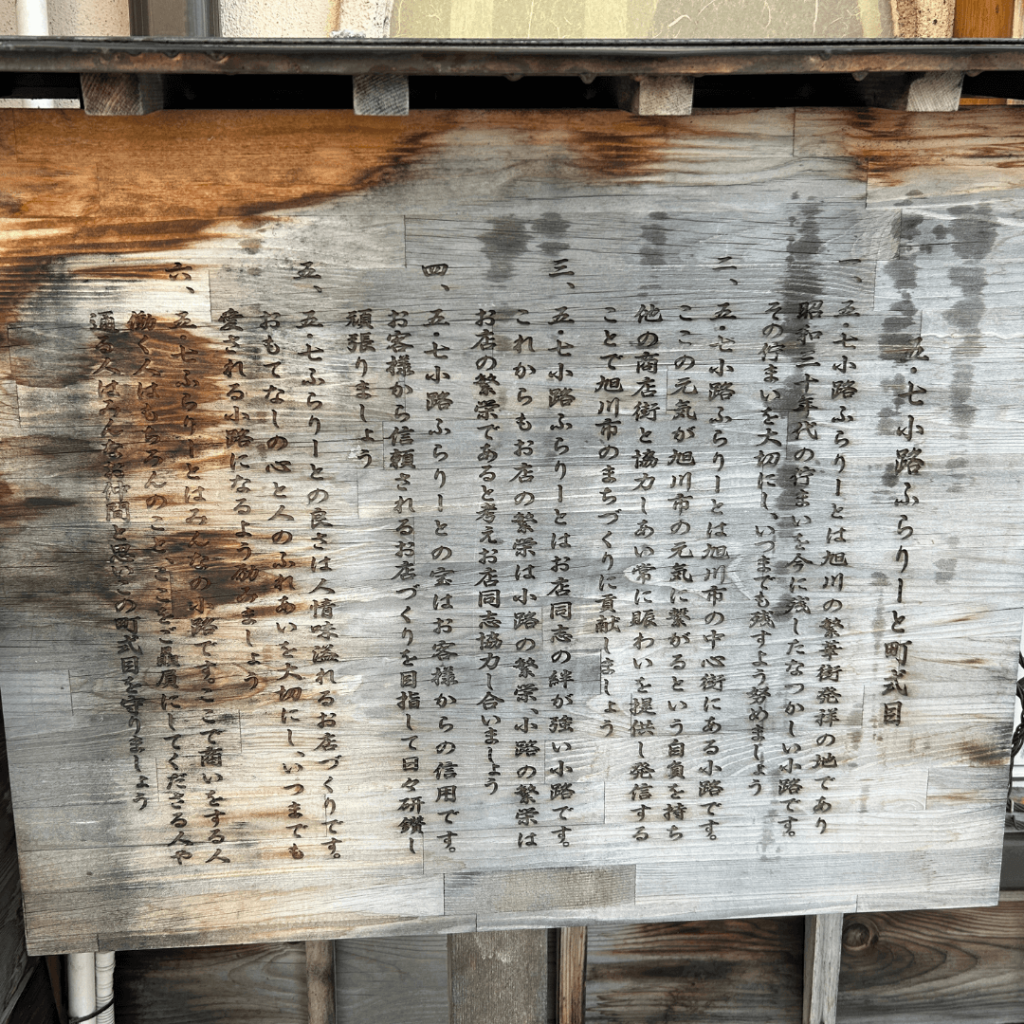 五・七小路ふらりーと町式目
一、五・七小路ふらりーとは旭川の繁華街発祥の地であり
昭和三十年代の佇まいを今に残したなつかしい小路です。
その佇まいを大切にし、いつまでも残すよう努めましょう
二、五・七小路ふらりーとは旭川市の中心街にある小路です。
ここの元気が旭川市の元気に繋がるという自負を持ち
他の商店街と協力しあい常に賑わいを提供し発信する
ことで旭川市のまちづくりに貢献しましょう
三、五・七小路ふらりーとはお店同志の絆が強い小路です。
これからもお店の繁栄は小路の繁栄、小路の繁栄は
お店の繁栄であると考えお店同志協力し合いましょう
四、五・七小路ふらりーとの宝はお客様からの信用です。
お客様から信頼されるお店づくりを目指して日々研鑽し
頑張りましょう
五、五・七ふらりーとの良さは人情味溢れるお店づくりです。
おもてなしの心と人のふれあいを大切にし、いつまでも
愛される小路になるよう励みましょう
六、五・七ふらりーとはみんなの小路です。ここで商いをする人
働く人はもちろんのこといさここ贔屓にしてくださる人や
通る人はみんなお仲間と思いこの町式目を守りましょう